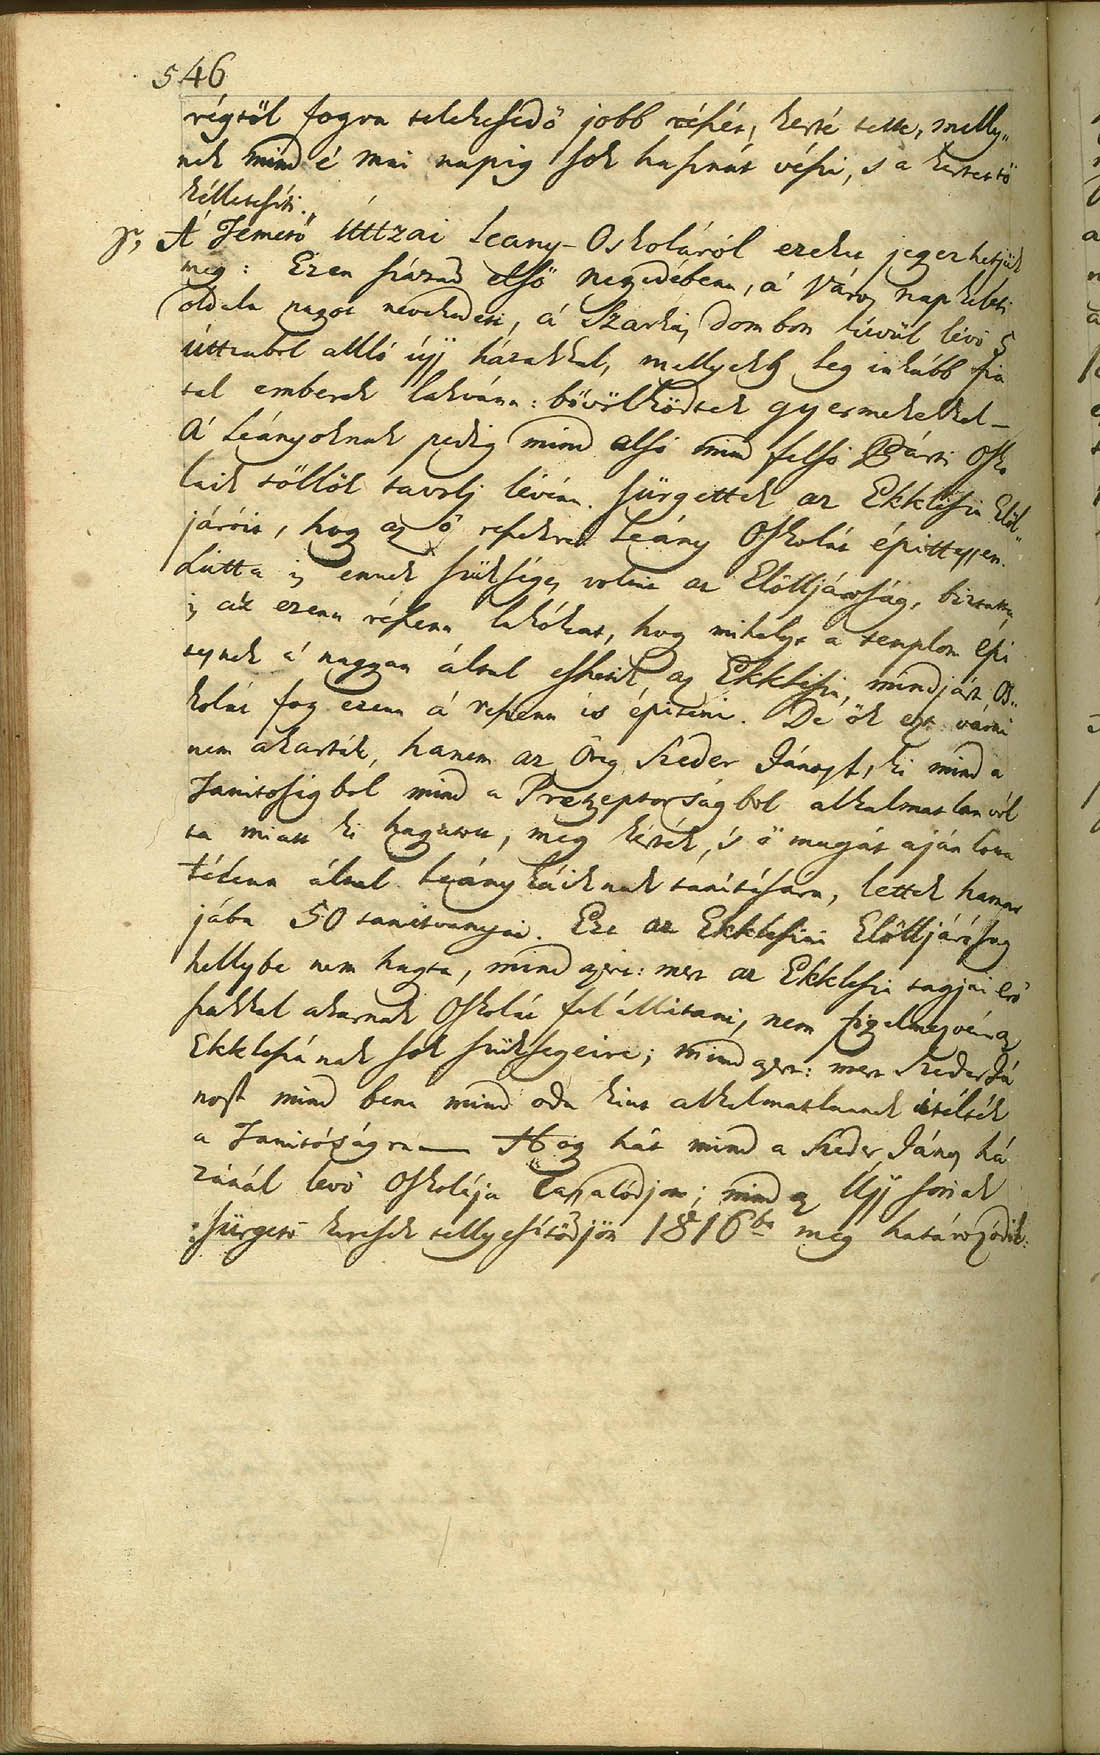 546
régtöl fogva telekesedő jobb részét, kerté tette, melly„
nek mind é mai napig sok hasznát vészi, s a kertet is
kelletesiti.
A Temető Úttzai Leany-Oskoláról ezeket jegyezhetjük
meg: Ezen század első negyedébenn, á Város napkeleti
oldala nagyot nevekedett, á Szarkás dombon kivül lévő 5
úttzabol álló új házakkal, mellyekbe leg inkább fia
tal emberek lakvánn: bővölködtek gyermekekkel —
A' Leányoknak pedig mind alsó mind felső Párti Osko
laik töllök távoly lévénn. sürgették az Ekklesia Elöl„
járóit, hogy az ő részekre Leány Oskolát épittessen.
Látta is ennek szükséges voltát az Elölljáróság, biztatta
is az ezenn részenn lakókat, hogy mihelyt a templom épi
tésnek á nagyann által eshetik az Ekklesia, mindjárt Os„
kolát fog ezenn á részenn is épiteni. De ők ezt várni
nem akarták, hanem az Öreg Szeder Jánost, ki mind a
Tanitoságbol mind a Preceptorságbol alkalmatlan vól
ta miatt ki hagyatott, meg kérték, 's ő magát ajánlotta
télenn által Leánykáiknak tanitására, lettek hamar
jába 50 tanitvanyai. Ezt az Ekklesiai Elölljáróság
hellybe nem hagyta, mind azért: mert az Ekklesia tagjai erő
szakkal akarnak Oskolát fel állitani, nem figyelmezvén az
Ekklesiának sok szükségeire; mind azért: mert Szeder Já
nost mind benn mind oda kint alkalmatlannak itélték
a Tanitóságra — Hogy hát mind a Szeder János há
zánál levő Oskolája tapalódjon; mind az Újj soriak
sürgető kerések tellyesítődjön 1816ba meg határozódik: